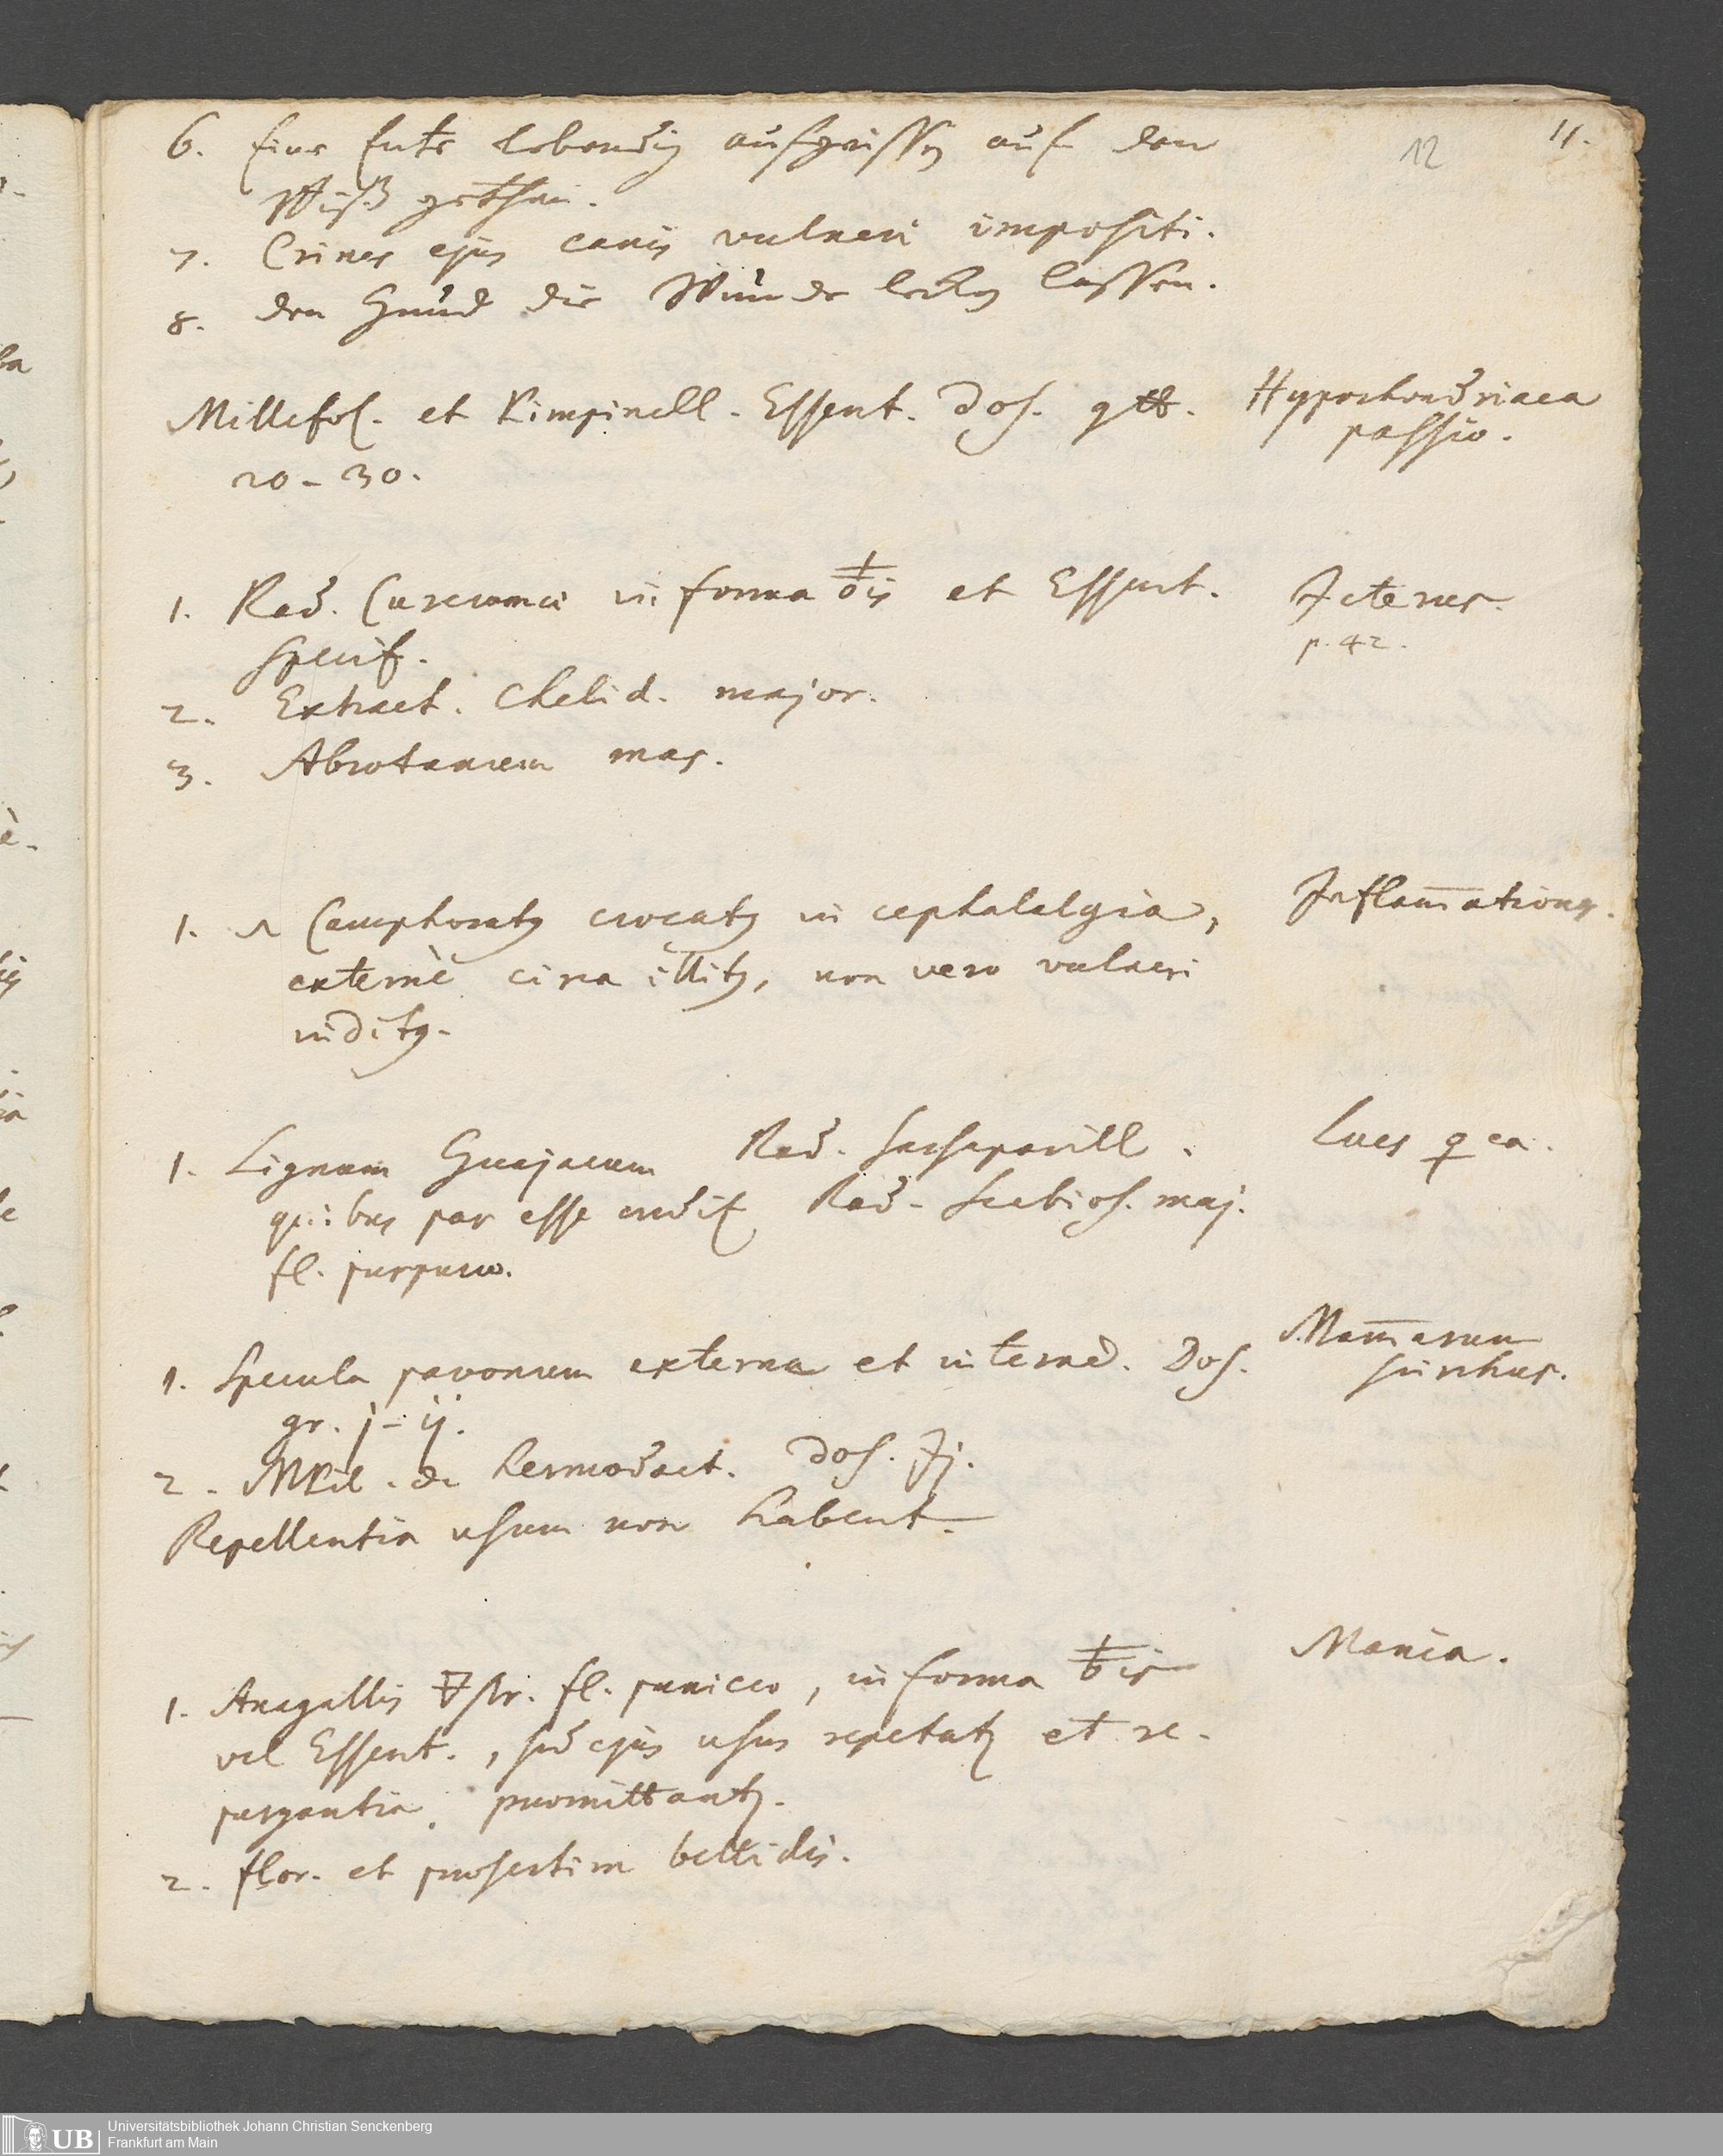 12
11.
6. Eine Ente lebendig aufgerissen auf den
Biß gethan.
7. Crines ejus canis vulneri impositi.
8. den Hund die Wunde lecken lassen.
Millefol. et Pimpinell. Essent. Dos. gtt.
20 - 30.
Hypochondriaca
passio.
1. Rad. Curcumae in forma ♁is et Essent.
specif.
2. Extract. Chelid. major.
3. Abrotanum mas.
Icterus.
p. 42.
1. Camphoratus crocatus in cephalalgia,
externè circa illitus, non vero vulneri
inditus.
Inflam̄ationes.
1. Lignum Guajacum Rad. Sarsaparill.
quibus par esse credit Rad. Scabios. maj.
fl. purpureo.
Lues ♀ea.
1. Specula pavonum externa et interned. Dos.
gr. j - ij.
2. de hermodact. Dos. ʒj.
Repellentia usum non habent.
Mam̄arum
scirrhus.
1. Anagallis 🜃str. fl. puniceo, in forma ♁is
vel Essent., sed ejus usus repetatur et re-
purgantia praemittantur.
2. flor. et praesertim bellidis.
Mania.
UB
Universitätsbibliothek Johann Christian Senckenberg
Frankfurt am Main